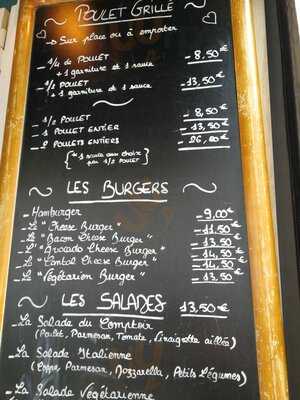 POULET GRILLÉ
→ Sur place ou à emporter
- 1/4 de POULET - 8,50€
+ 1 garniture et 1 sauce
- 1/2 POULET - 13,50€
+ 1 garniture et 1 sauce
- 1/2 POULET - 8,50€
- 1 POULET ENTIER - 13,50€
- 2 POULETS ENTIERS - 26,00€
(* 1 sauce au choix
par 1/2 POULET)
~ LES BURGERS ~
- Hamburger - 9,00€
- Le "Cheese Burger" - 11,50
- Le "Bacon Cheese Burger" - 13,50
- L'"Avocado Cheese Burger" - 14,50
- Le "Cantal Cheese Burger" - 14,50
- Le "Végétarien Burger" - 13,50
~ LES SALADES 13,50€
- La Salade du Comptoir
(Poulet, Parmesan, Tomate, Vinaigrette aillée)
- La Salade Italienne
(Coppa, Parmesan, Mozzarella, Petits légumes)
- La Salade Végétarienne